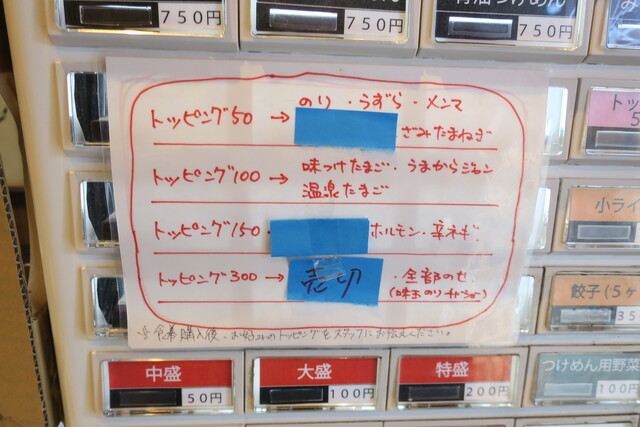 750円
750円
背脂つけめん
750円
み
トッピング50 → のり・うずら・メンマ
きざみたまねぎ
トッピング100 → 味つけたまご・うまからジャン
温泉たまご
トッピング150・ ホルモン・辛ネギ
トッピング300 → 売切 ・全部のせ
(味玉のりチャーシュー)
※食券購入後、お好みのトッピングをスタッフにお伝えください。
トッピ
5
小ライ
餃子(5ヶ
35
中盛
50円
大盛
100円
特盛
200円
つけめん用野菜
100円